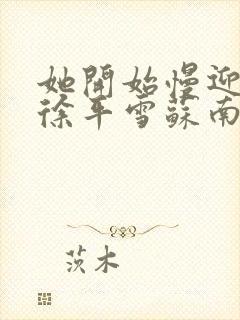 她開始慢迎
徐平雪蘇南
茨木